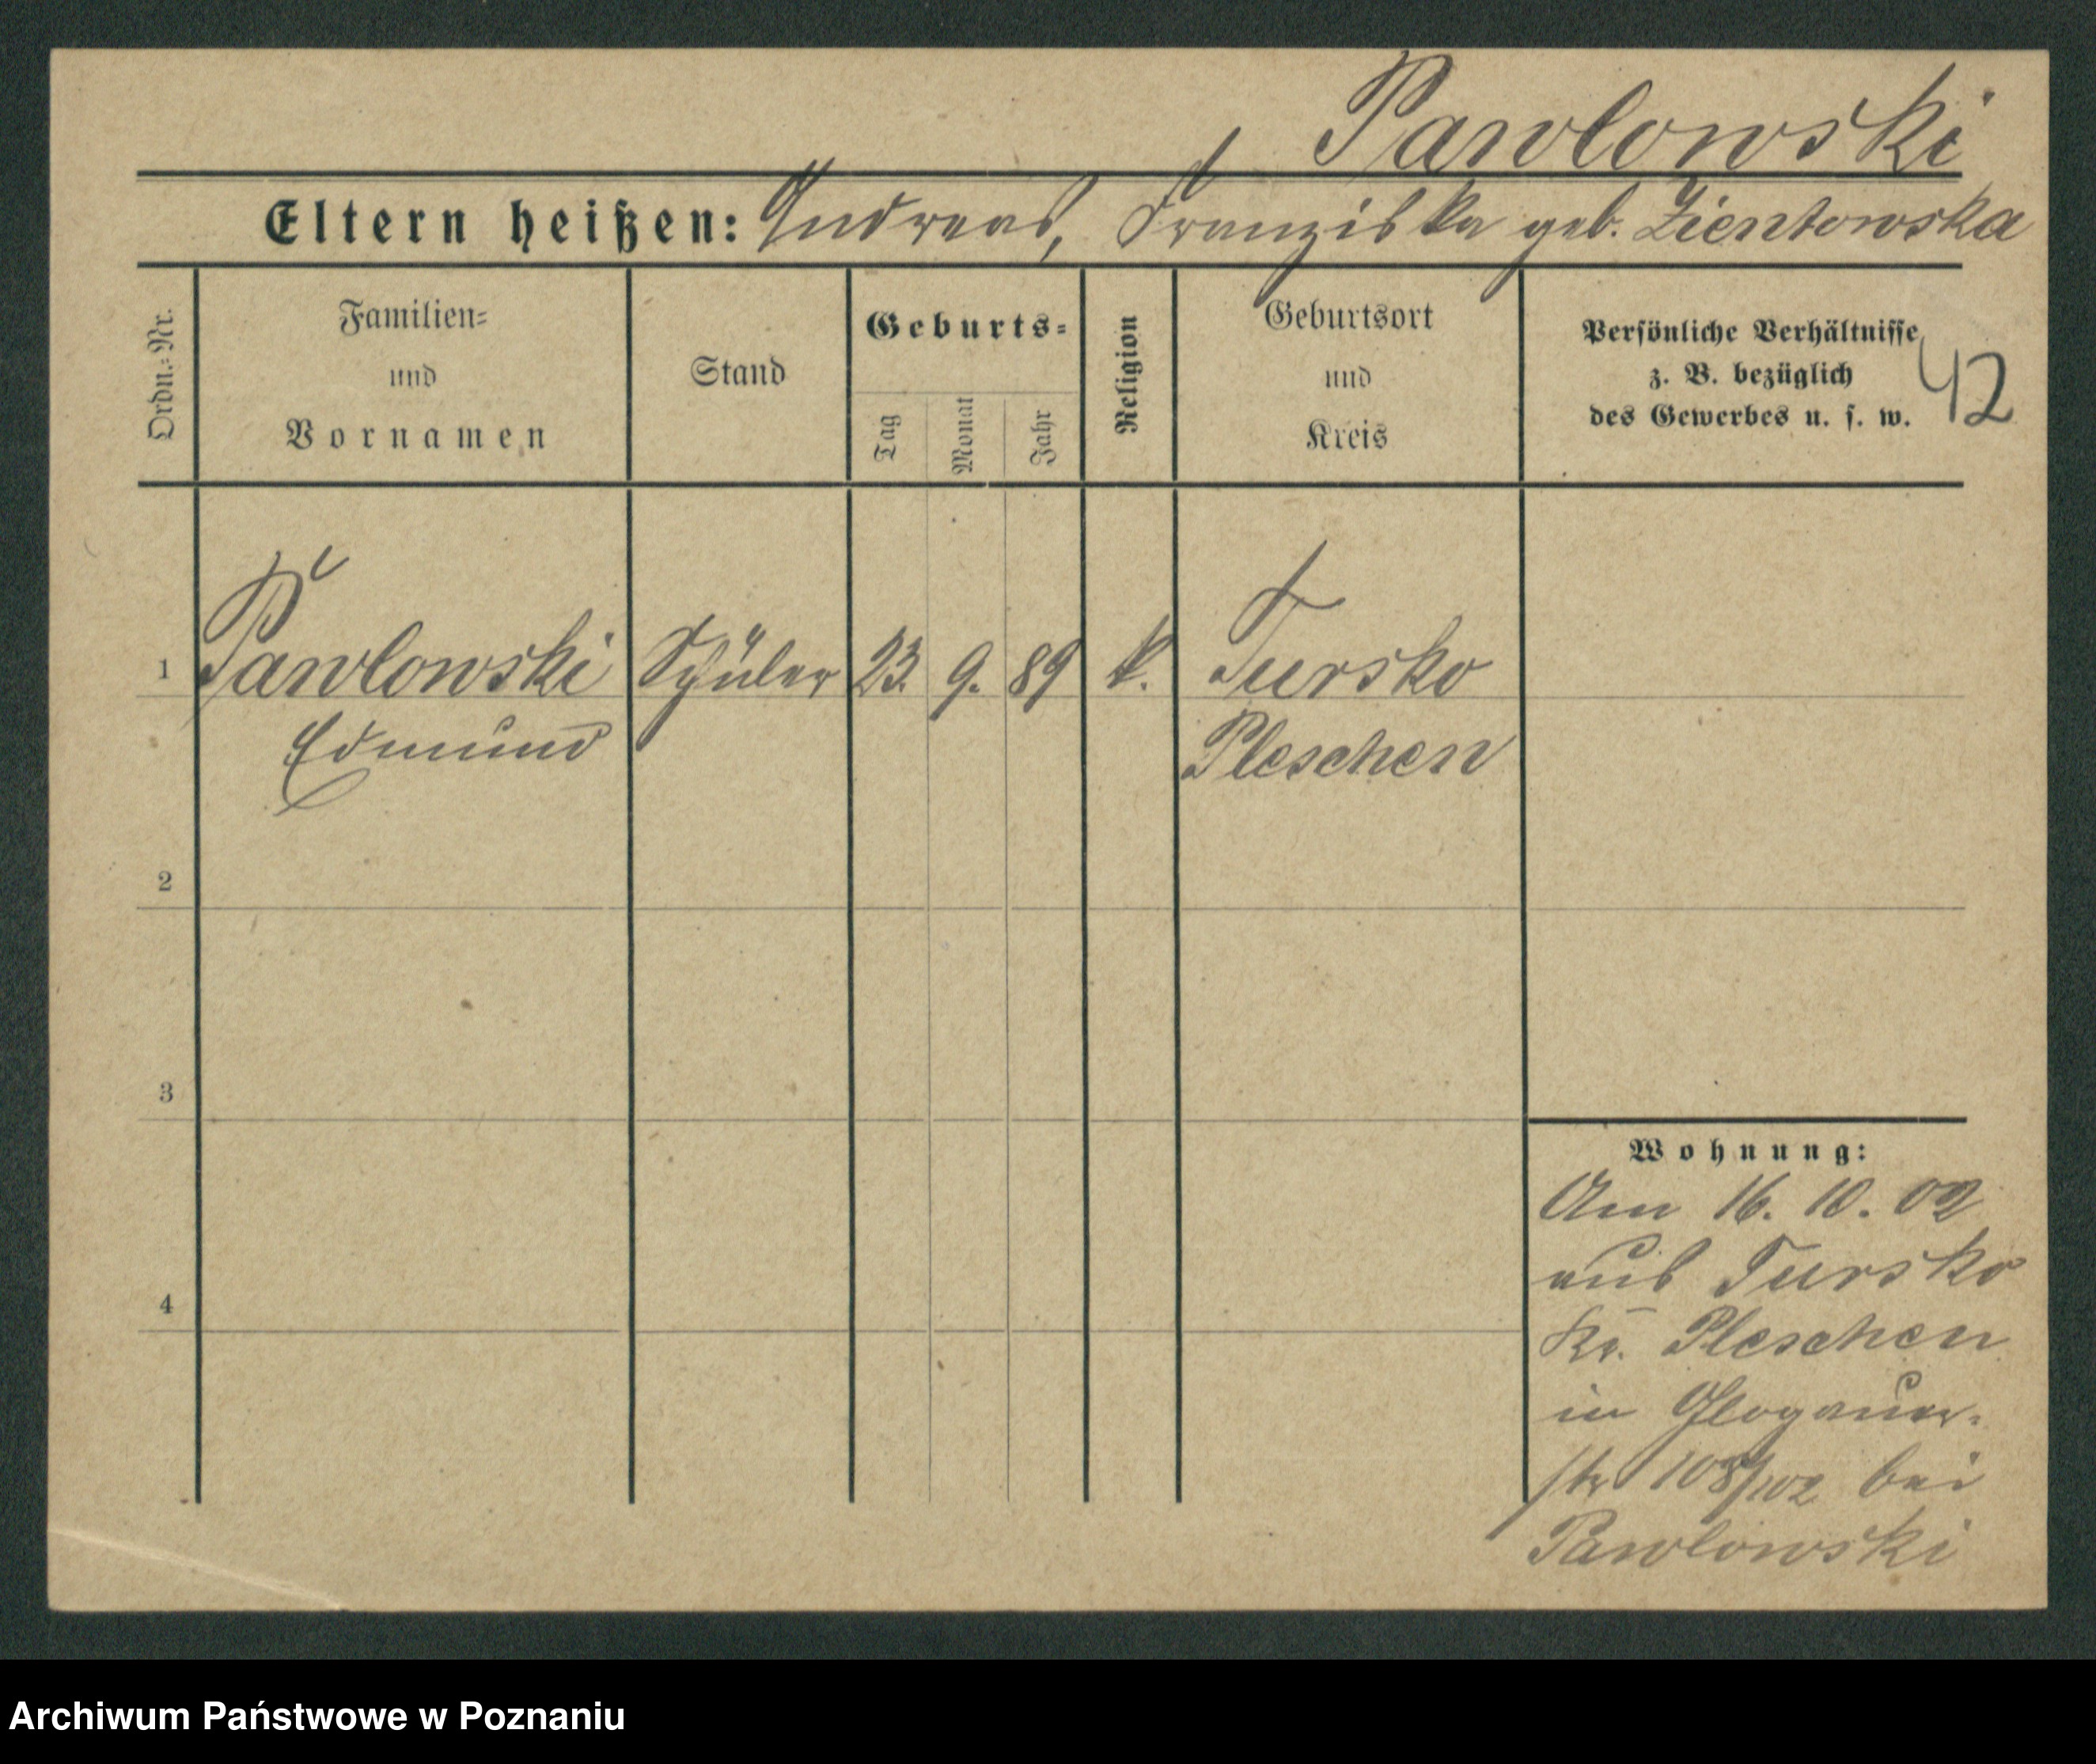 Pawlowski
Eltern heißen: Andreas, Franziska geb. Zientowska
Ordn.=Nr.
Familien=
und
Vornamen
Stand
Geburts=
Tag
Monat
Jahr
Religion
Geburtsort
und
Kreis
Persönliche Verhältnisse
z. B. bezüglich
des Gewerbes u. s. w.
42
1 Pawlowski Schüler 23. 9. 89 k. Tursko
Edmund Pleschen
2
3
4
Wohnung:
Am 16. 10. 02
aus Tursko
Kr. Pleschen
in Glogauer-
str 108/102 bei
Pawlowski
Archiwum Państwowe w Poznaniu